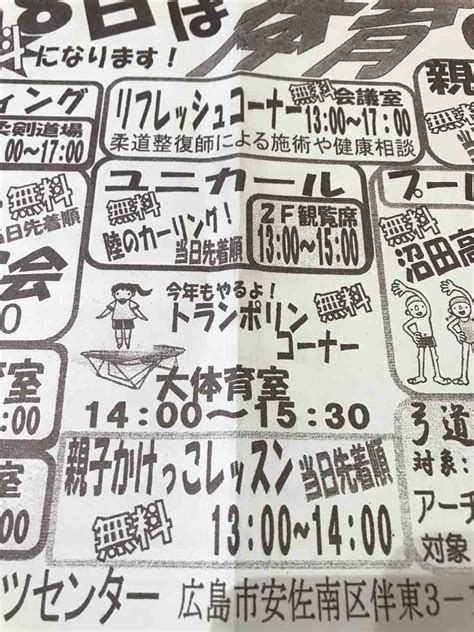 8日は体育
料になります！
ィング
柔剣道場
00～17:00
リフレッシュコーナー 無料 会議室
13:00～17:00
柔道整復師による施術や健康相談
親
無料
当日先着順
ユニカール
無料
陸のカーリング！
当日先着順
2F観覧席
13:00～15:00
プー
無料
沼田高
会
0
今年もやるよ！
無料
トランポリン
コーナー
大体育室
14:00～15:30
育室
:00
室
:00
親子かけっこレッスン 当日先着順
無料
13:00～14:00
弓道
対象:
アーチ
対象
ツセンター 広島市安佐南区伴東3-